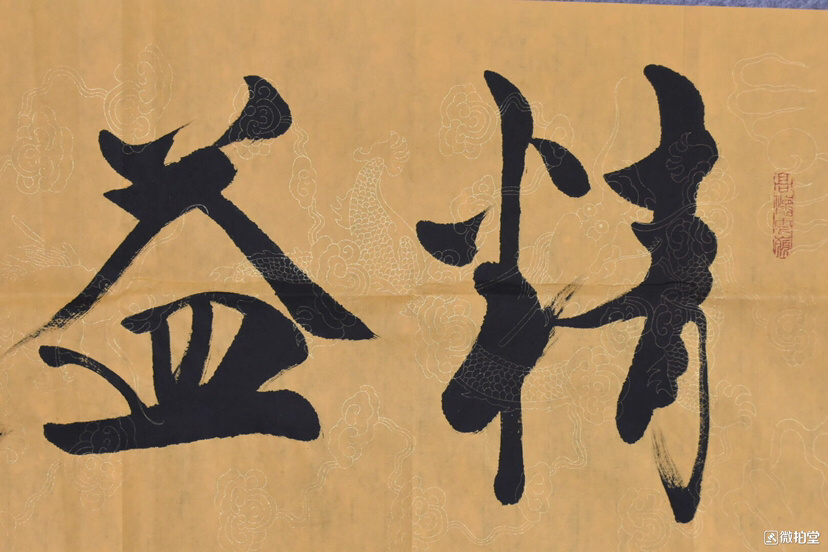 精益
微拍堂